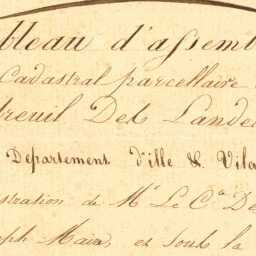 bleau d'assemb
Cadastral parcellaire
treuil Des Landes
Departement d'ille & Vila
stration de Mr Le Cte De
seph Maire, et sous la